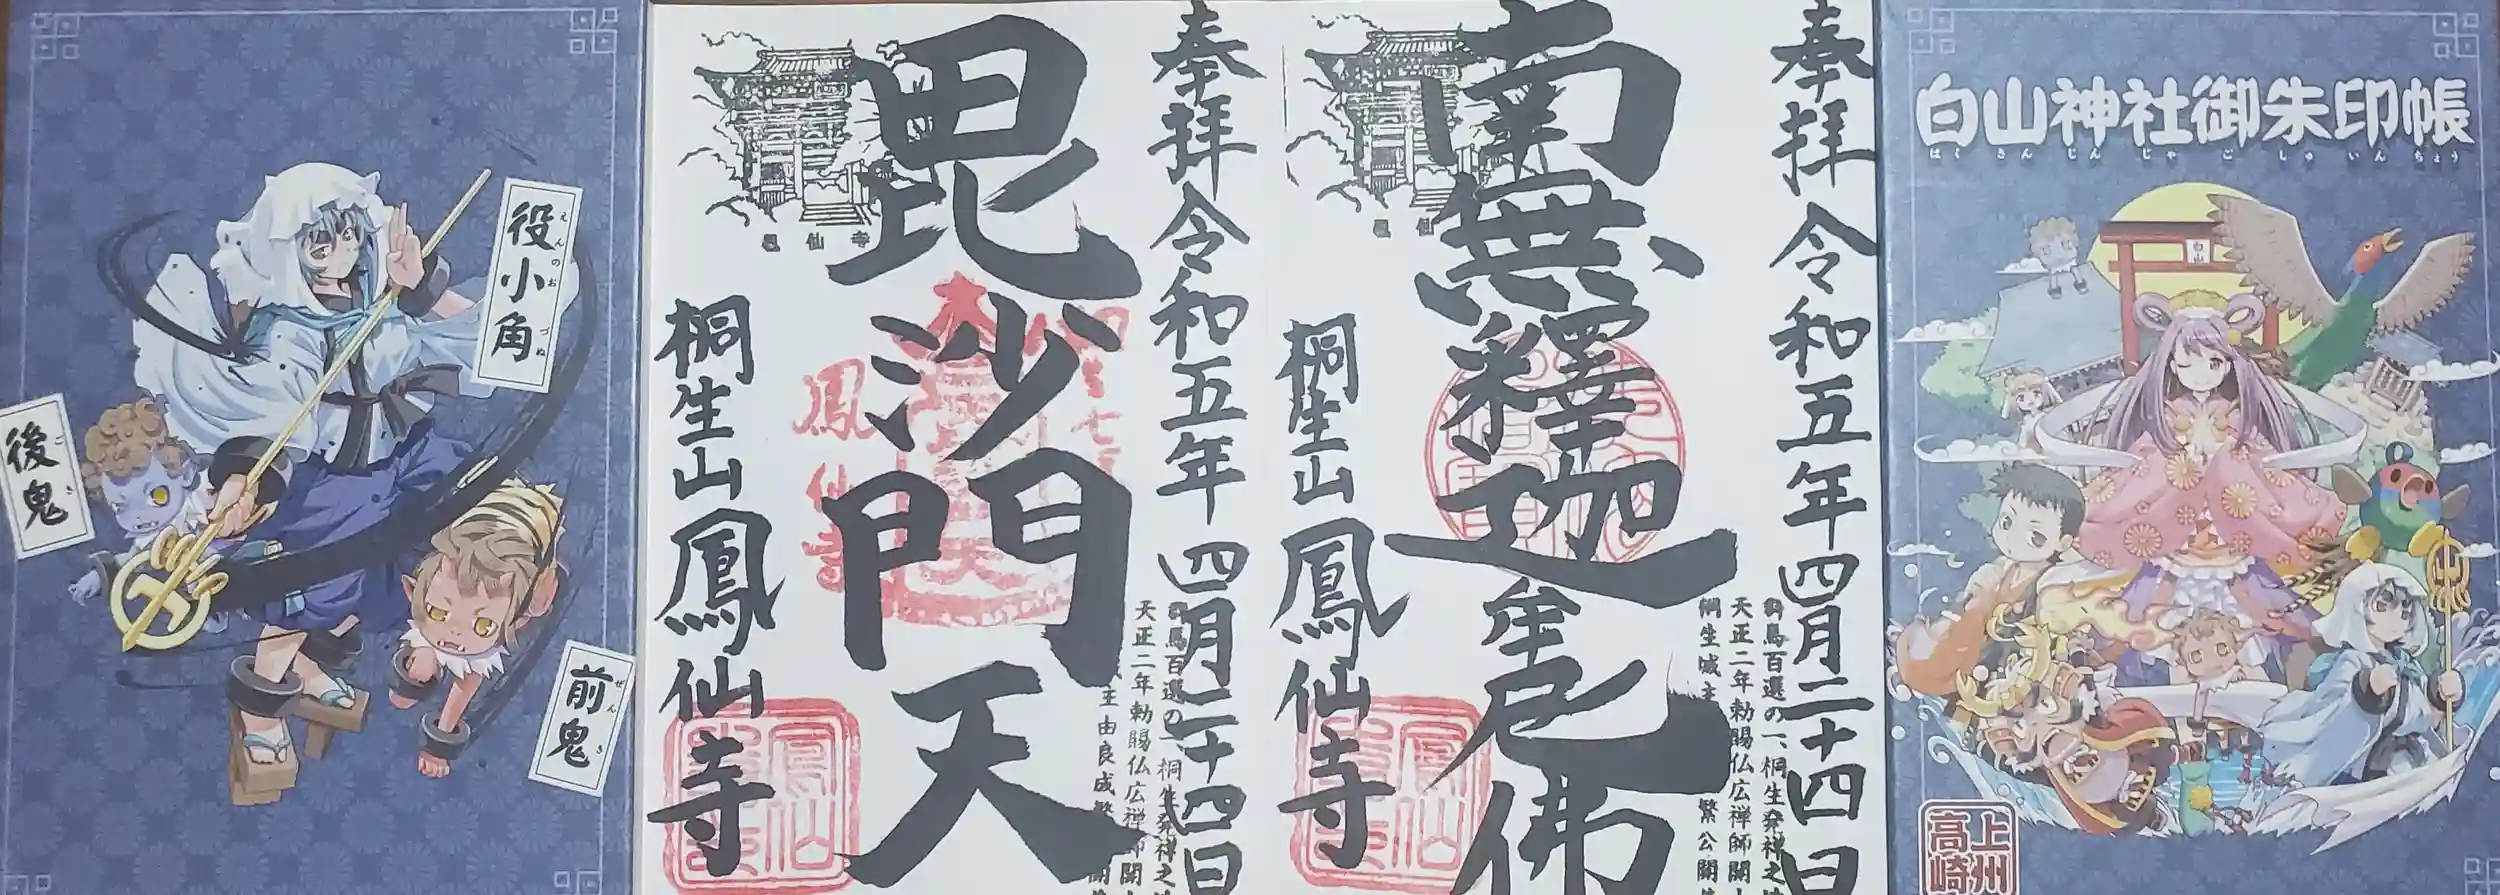 白山神社御朱印帳
はくさんじんじゃごしゅいんちょう
白山
上州
高崎
奉拝 令和五年四月二十四日
群馬百選の一、桐生発祥之地
天正二年勅賜仏広禅師開
桐生城主 繁公開
南無釋迦牟尼佛
桐生山鳳仙寺
奉拝 令和五年四月二十四日
桐生発祥之
群馬百選の一、
天正二年勅賜仏広禅師開
主由良成繁
毘沙門天
鳳仙寺
桐生山鳳仙寺
役小角
えんのおづぬ
後鬼
ごき
前鬼
ぜんき